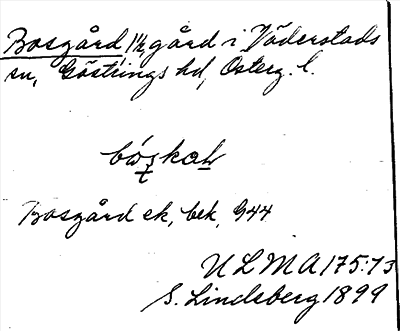 Bosgård, 1½ gård i Väderstads
sn, Göstrings hd, Österg. l.
Bosgård ek, bek, G44
ULMA 175:73
S. Lindeberg 1899